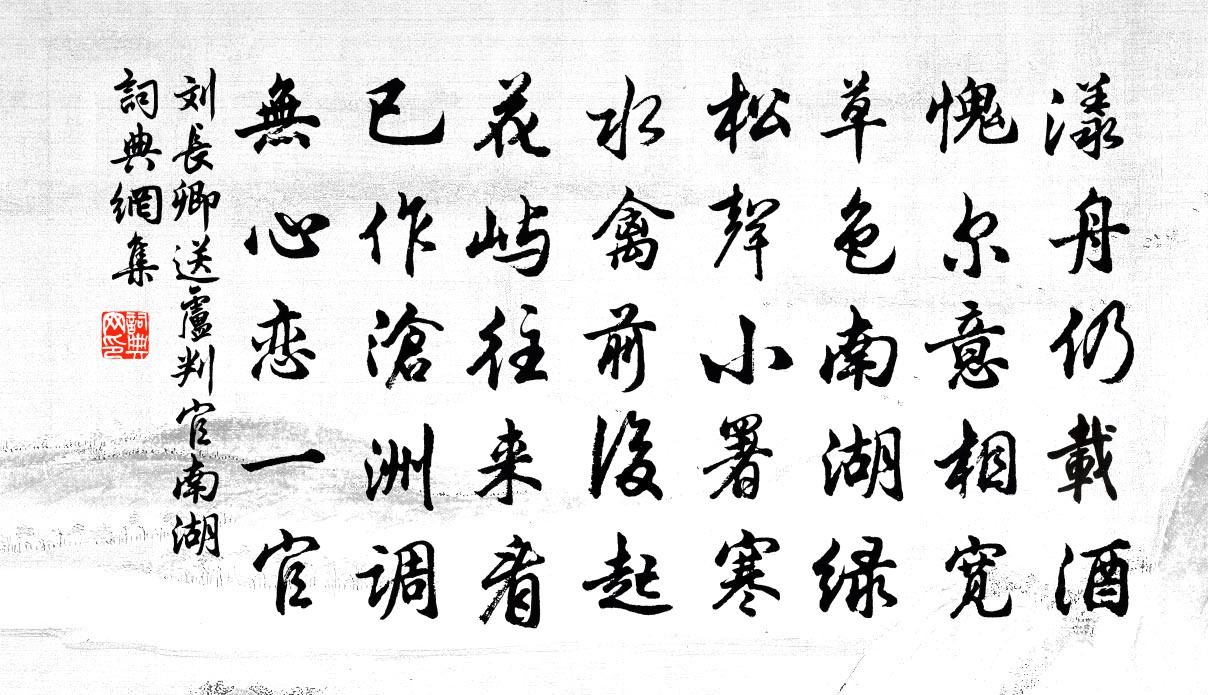 漾舟仍載酒
愧尔意相宽
草色南湖绿
松聲小署寒
水禽前後起
花屿往来看
已作滄洲調
無心恋一官
刘長卿送盧判官南湖
詞典網集
詞典网印